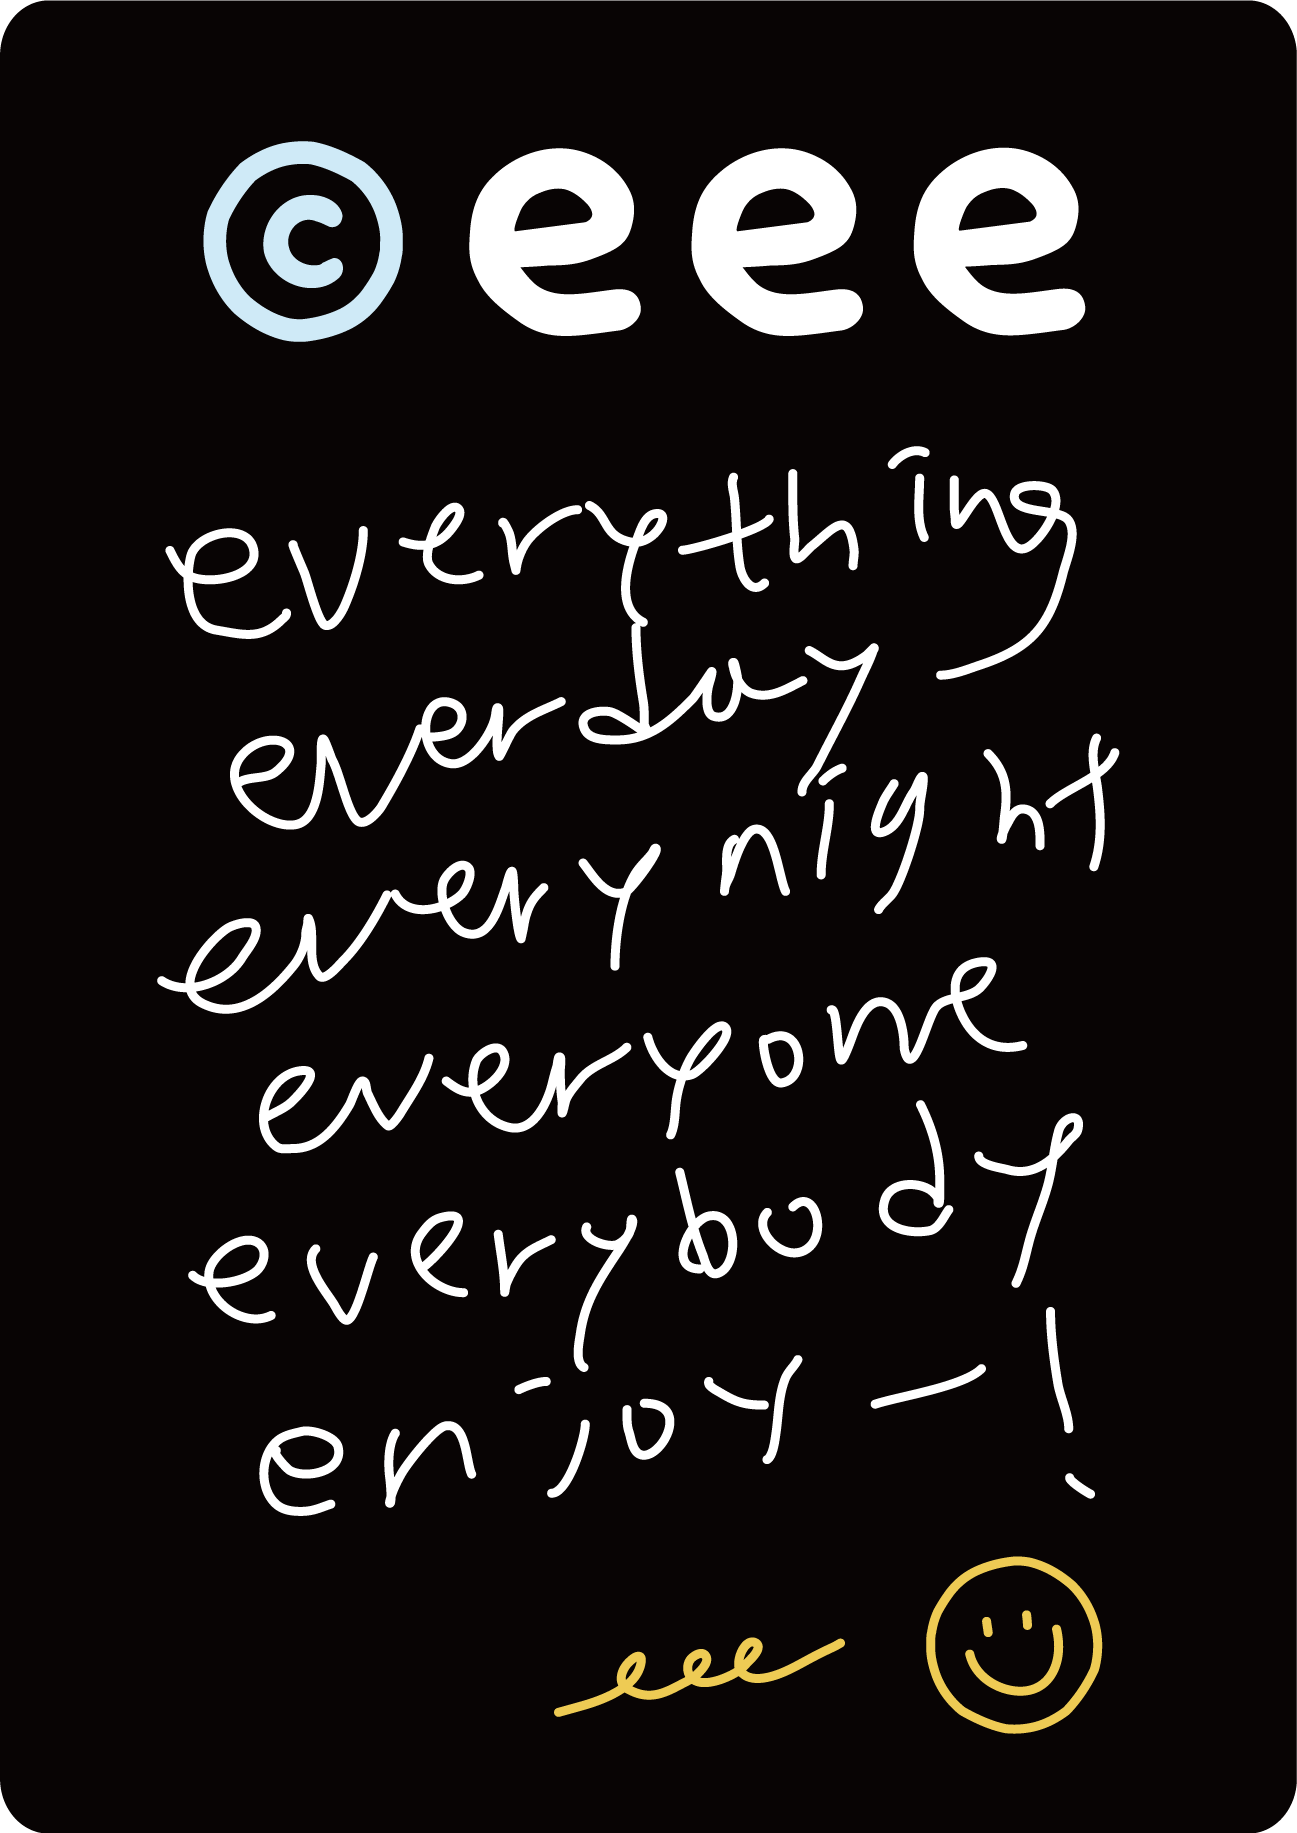 © eee
everything
everday
every night
everyone
everybody
enjoy—!
eee